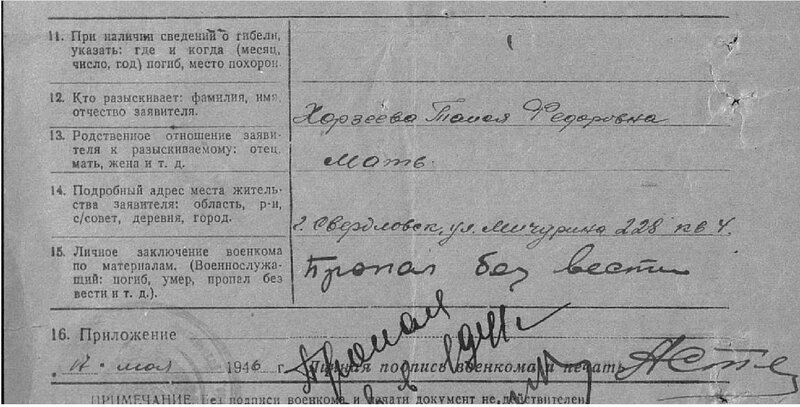 11. При наличии сведений о гибели,
указать: где и когда (месяц,
число, год) погиб, место похорон
12. Кто разыскивает: фамилия, имя,
отчество заявителя.
Хорзеева Таисья Федоровна
13. Родственное отношение заяви-
теля к разыскиваемому: отец,
мать, жена и т. д.
Мать.
14. Подробный адрес места житель-
ства заявителя: область, р-н,
с/совет, деревня, город.
г. Свердловск, ул. Мичурина 228 кв 4.
15. Личное заключение военкома
по материалам. (Военнослужа-
щий: погиб, умер, пропал без
вести и т. д.).
Пропал без вести
16. Приложение
мая 1946 г.
Личная подпись военкома и печать
ПРИМЕЧАНИЕ Без подписи военкома и печати документ не действителен